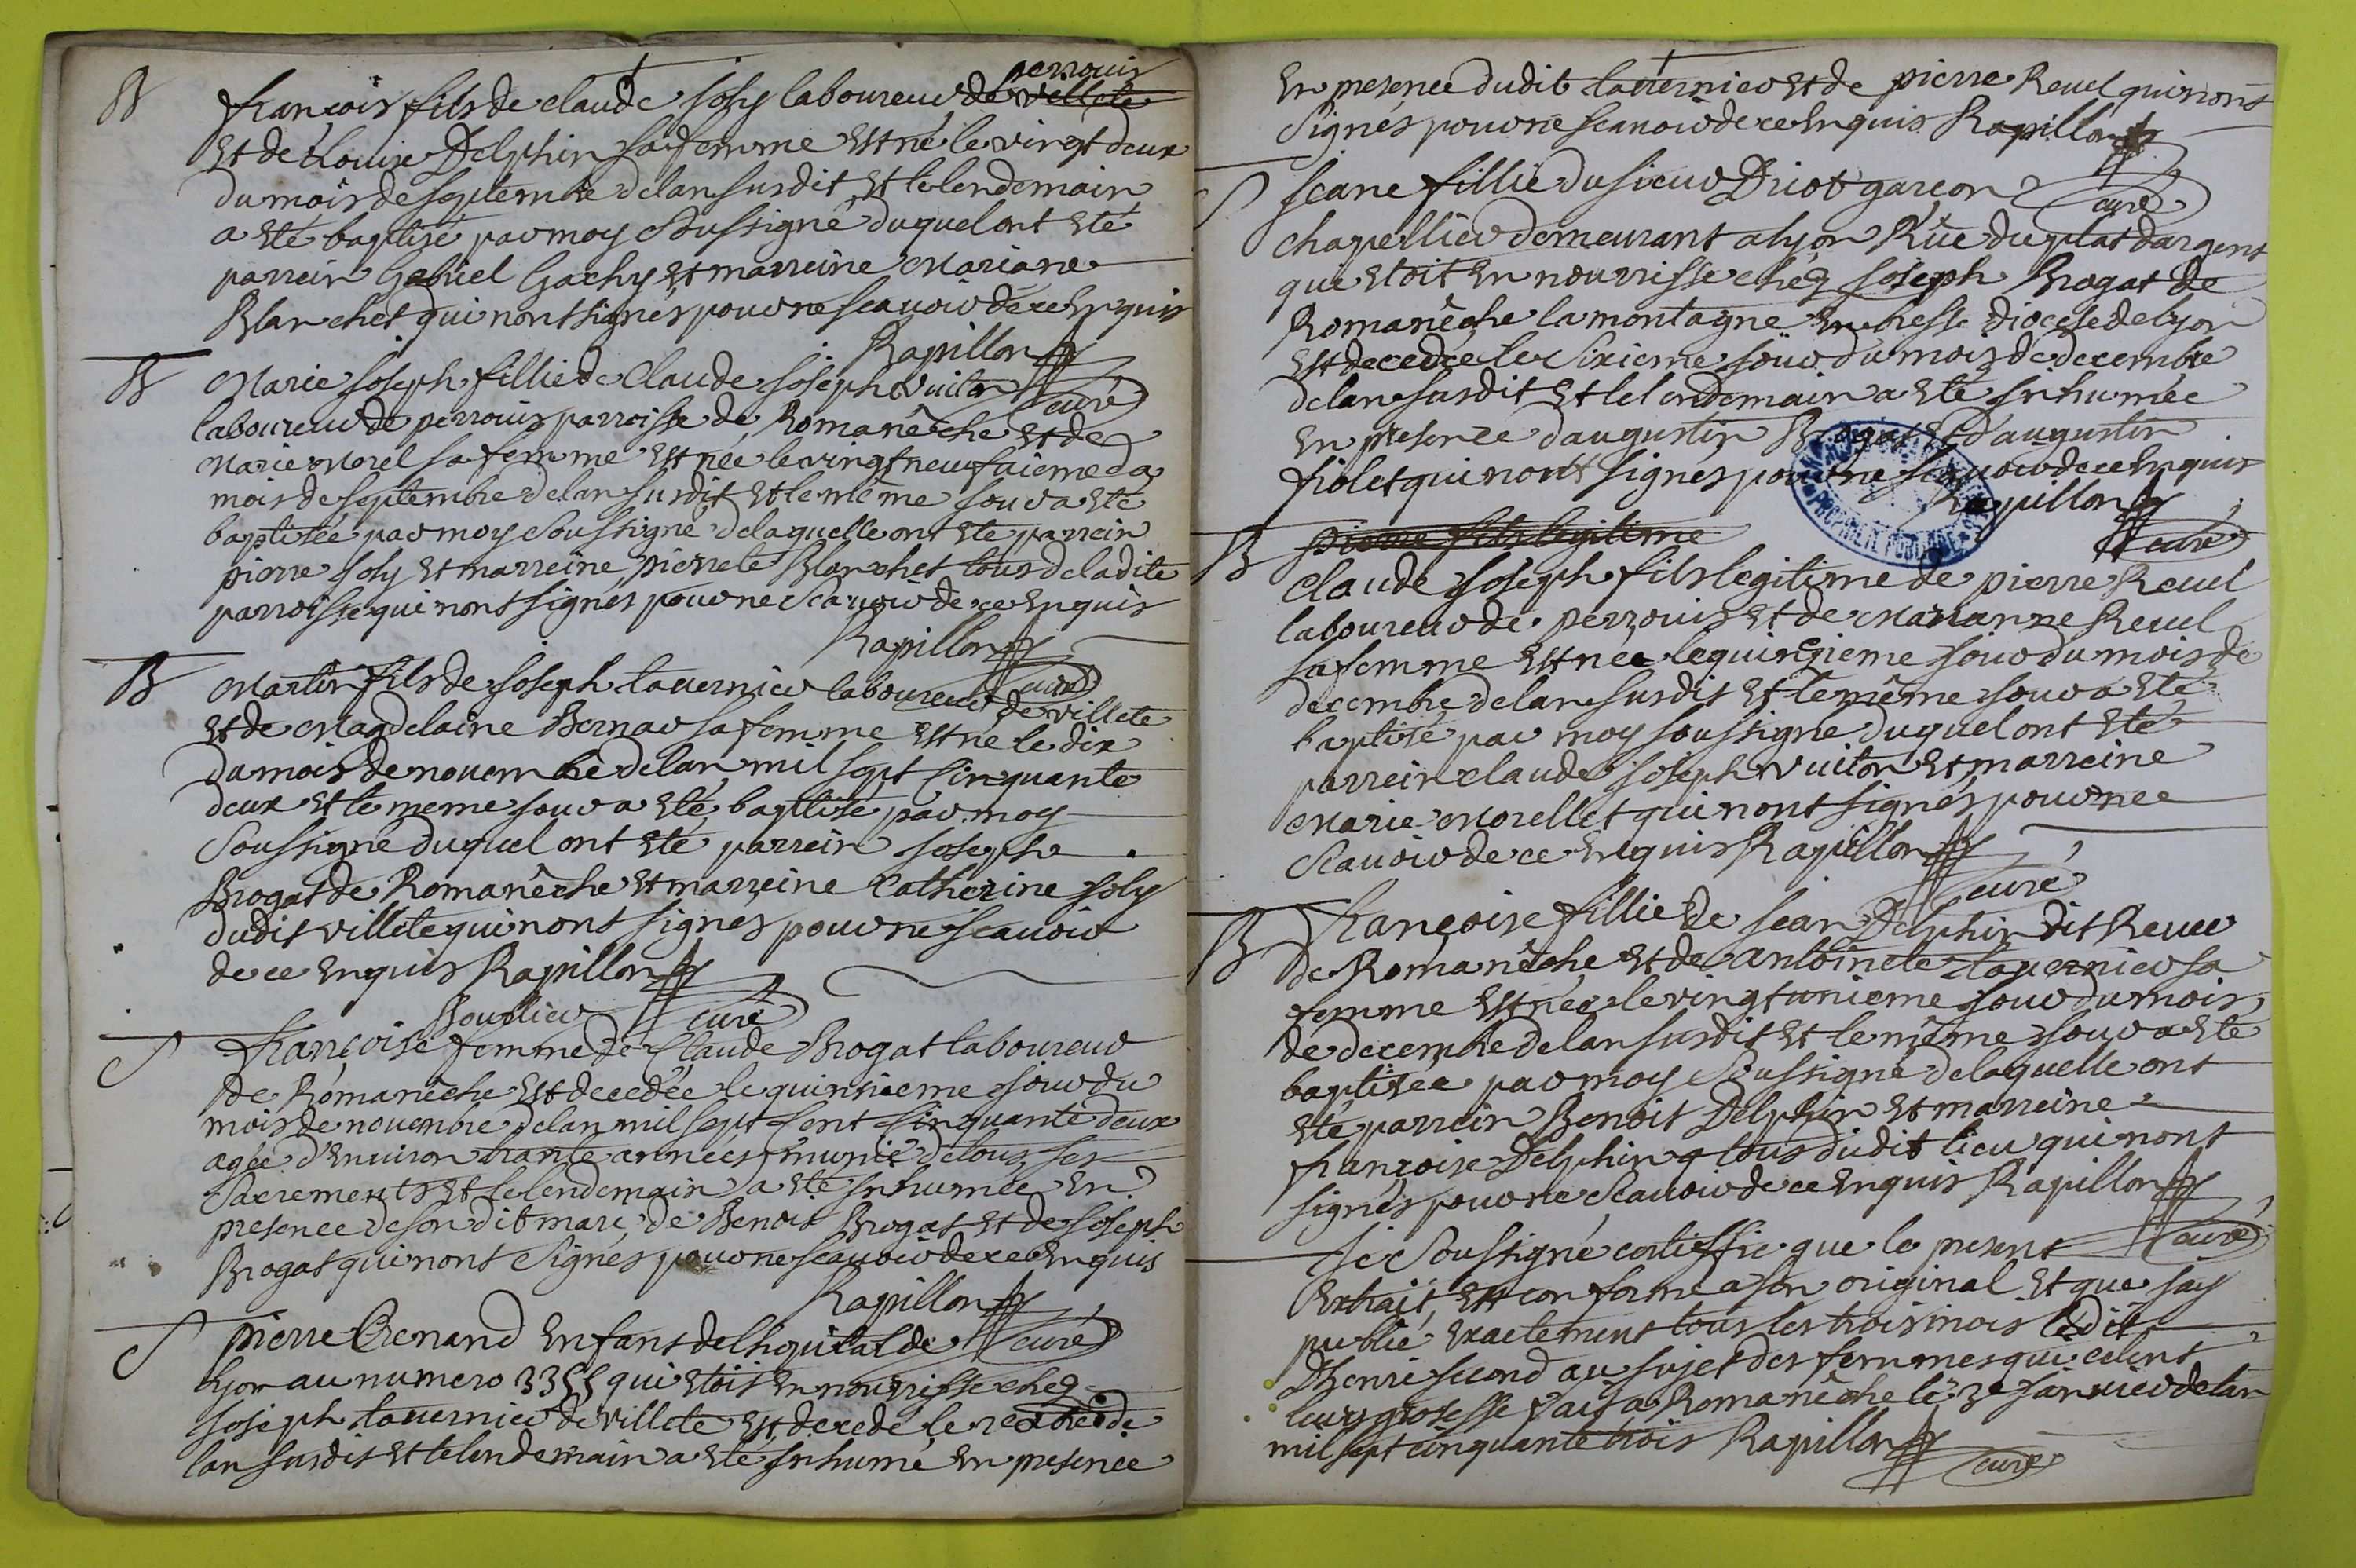 perrouis
B françois fils de claude Joly laboureur de villete
Et de Louise Delphin sa femme Est né le vingt deux
du mois de septembre de lan susdit Et le lendemain
a Eté baptisé par moy soussigné duquel ont Eté
parrein Gabriel Gachy Et marreine Mariane
Blanchet qui nont signés pour ne scauoir de ce Enquis
Rapillon
curé
B Marie Joseph fillie de Claude Joseph Vuiton
laboureur de perrouis parroisse de Romanêche Et de
Marie Morel sa femme Est née le vingt neufuieme du
mois de septembre de lan susdit Et le même Jour a Eté
baptisée par moy soussigné de laquelle ont Eté parrein
pierre Joly Et marreine pierrete Blanchet tous de ladite
parroisse qui nont signés pour ne scauoir de ce Enquis
Rapillon
curé
B Martin fils de Joseph tauernier laboureur de villete
Et de Magdelaine Bernar sa femme Est né le dix
du mois de nouembre de lan mil sept cinquante
deux Et le meme Jour a Eté baptisé par moy
soussigné duquel ont Eté parrein Joseph
Brogat de Romanêche Et marreine Catherine Joly
dudit villete qui nont signés pour ne scauoir
de ce Enquis Rapillon
curé
Bourlier
S françoise femme de Claude Brogat laboureur
de Romanêche Est decedée le quinsieme Jour du
mois de nouembre de lan mil sept cent cinquante deux
agée d'Enuiron trante années munie de tous ses
sacrements Et le lendemain a Eté Inhumée En
presence de son dit mari, de Benoit Brogat Et de Joseph
Brogat qui nont signés pour ne scauoir de ce Enquis
Rapillon
curé
S pierre Crenand Enfant de lhopital de
lyon au numero 3355 qui Etoit En nourrisse chez
Joseph tauernier de villete Est decedé le de
lan susdit Et le lendemain a Eté Inhumé En presence
En presence dudit tauernier Et de pierre Reuel qui nont
signés pour ne scauoir de ce Enquis Rapillon
curé
S Jeane fillie du sieur Driot garcon
chapellier demeurant a lyon Rüe du plat dargent
qui Etoit En nourrisse chez Joseph Brogat de
Romanêche la montagne En bresse diocese de lyon
Est decedée le sixieme Jour du mois de decembre
de lan susdit Et le lendemain a Eté Inhumée
En presence d'augustin Brogat Et d'augustin
fiolet qui nont signés pour ne scauoir de ce Enquis
Rapillon
curé
B pierre fils legitime
Claude Joseph fils legitime de pierre Reuel
laboureur de perrouis Et de Marianne Reuel
sa femme Est née le quinzieme Jour du mois de
decembre de lan susdit Et le même Jour a Eté
baptisé par moy soussigné duquel ont Eté
parrein claude Joseph Vuiton Et marreine
Marie Morellet qui nont signés pour ne
scauoir de ce Enquis Rapillon
curé
B françoise fillie de Jean Delphin dit Reuer
de Romanêche Et de antoinete tauernier sa
femme Est née le vingt unieme Jour du mois
de decembre de lan susdit Et le même Jour a Eté
baptisée par moy soussigné de laquelle ont
Eté parrein Benoit Delphin Et marreine
françoise Delphin tous dudit lieu qui nont
signés pour ne scauoir de ce Enquis Rapillon
curé
Je soussigné certiffie que le present
Extrait Est conforme a son original Et que Jay
publié Exactement tous les trois mois ledit
d'henri second au sujet des femmes qui celent
leurs grossesse fait a Romanêche le 2e Januier de lan
mil sept cinquante trois Rapillon
curé
PROPRIETE PUBLIQUE